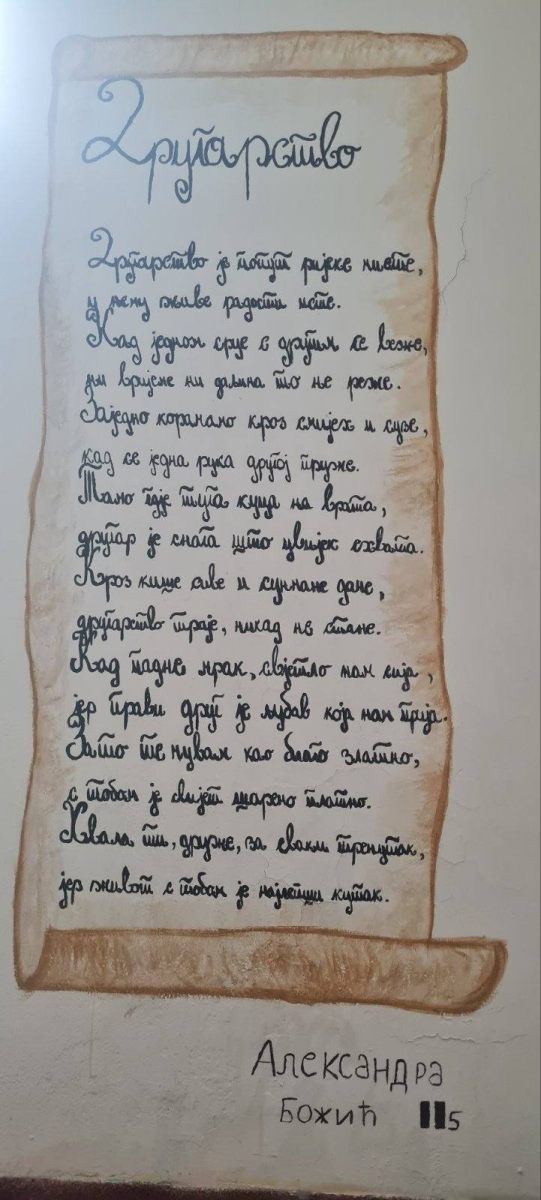 Другарство
Другарство је попут ријеке чисте,
у њему живе радости исте.
Кад једном срце с другим се веже,
ни вријеме ни даљина то не реже.
Заједно корачамо кроз смијех и сузе,
кад се једна рука другој пруже.
Тамо гдје туга куца на врата,
другар је снага што увијек схвата.
Кроз кише сиве и сунчане дане,
другарство траје, никад не стане.
Кад падне мрак, свјетло нам сија,
јер прави друг је љубав која нам прија.
Зато те чувам као благо златно,
с тобом је свијет шарено платно.
Хвала ти, друже, за сваки тренутак,
јер живот с тобом је најљепши кутак.
Александра
Божић II5